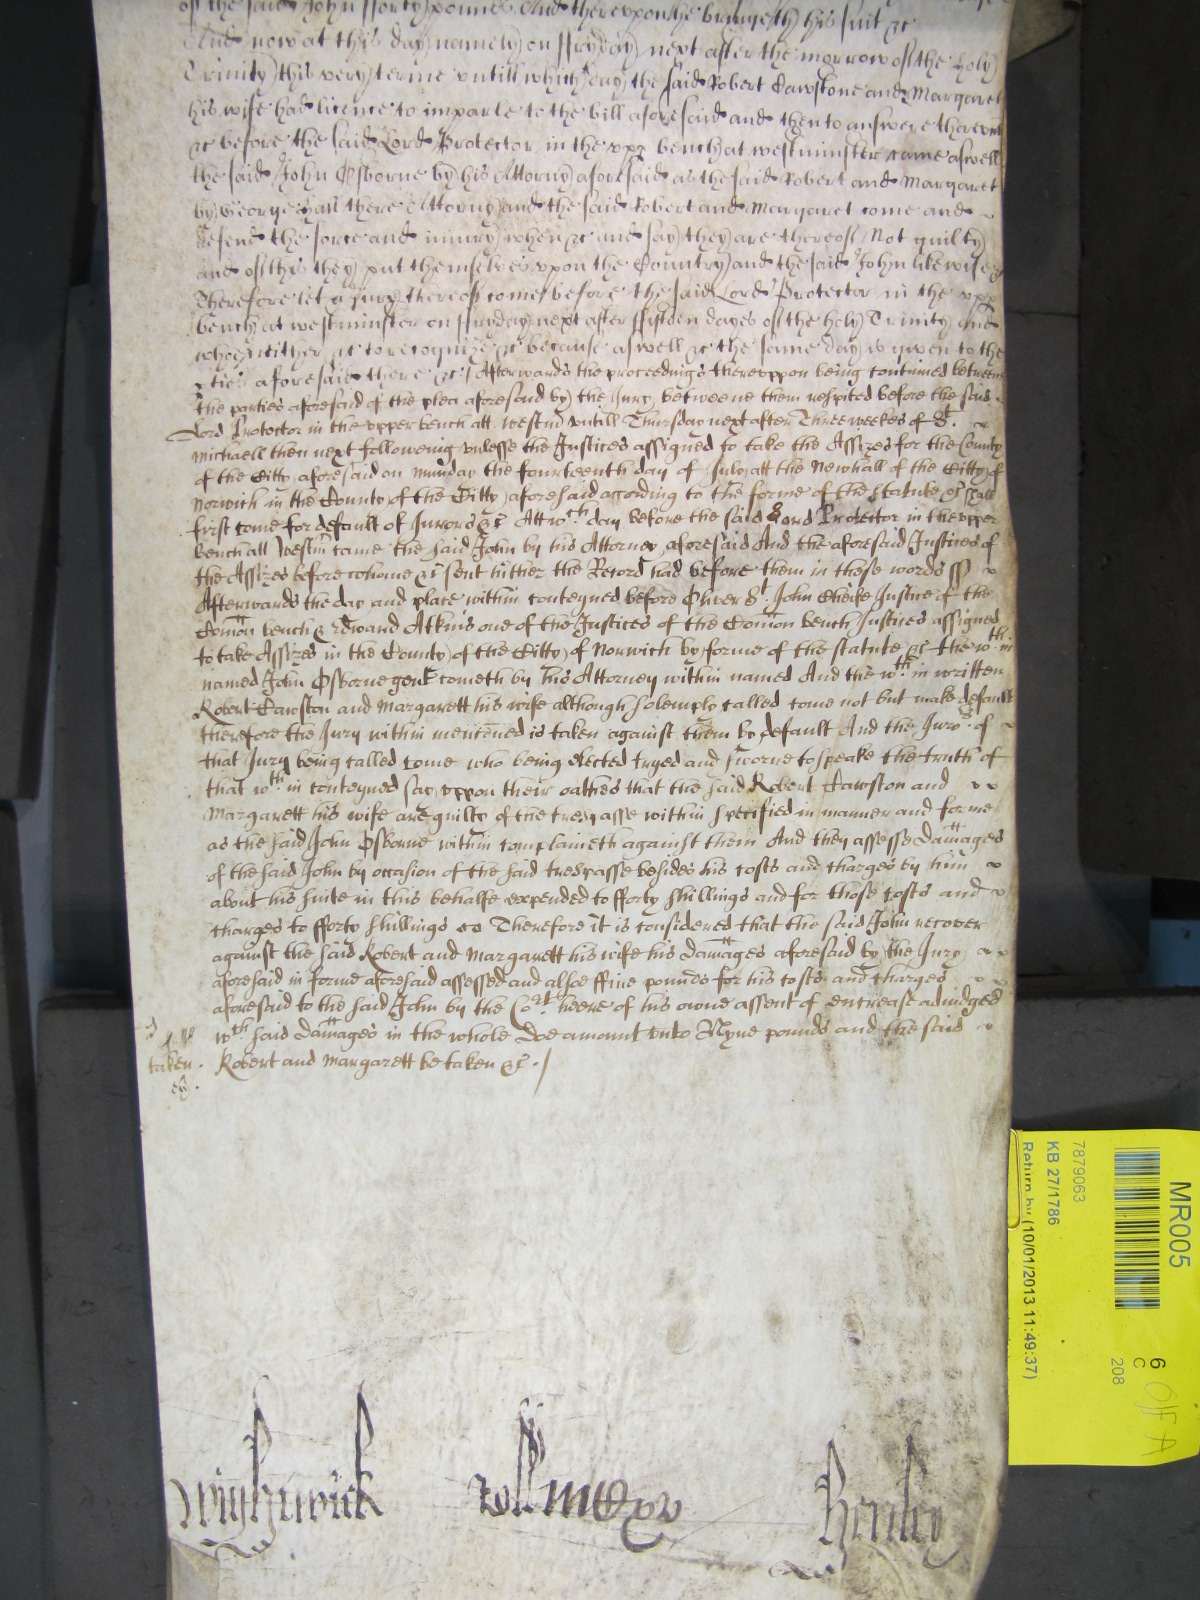 of the said John fforty pounds. And thereupon he bringeth his suit &c
And now at this day namely on ffryday next after the morrow of the holy
Trinity this very terme untill which day the said Robert Cawstone and Margaret
his wife had licence to imparle to the bill aforesaid and then to answere thereunto
&c before the said Lord Protector in the upp bench at westminster came aswell
the said John Osborne by his Attorny aforesaid as the said Robert and Margaret
by George Hall there Attorny and the said Robert and Margaret come and
defend the force and iniury when &c and say they are thereof Not guilty
and of this they put themselves uppon the Country and the said John likewise
Therefore let a Jury thereof come before the said Lord Protector in the upp
bench at westminster on ffryday next after ffifteen dayes of the holy Trinity and
who neither &c to recognize &c because aswell &c the same day is given to the
pties aforesaid there &c Afterwards the proceedings thereuppon being continued betweene
the parties aforesaid of the plea aforesaid by the Jury betweene them respited before the said
Lord Protector in the upper bench att westm untill Thursday next after Three weekes of St.
Michaell then next following unlesse the Justices assigned to take the Assizes for the County
of the Citty aforesaid on Munday the fourteenth day of July att the Newhall of the Citty of
Norwich in the County of the Citty aforesaid according to the forme of the statute &c shall
first come for default of Jurors &c Att wch day before the said Lord Protector in the upper
bench att Westm came the said John by his Attorney aforesaid And the aforesaid Justices of
the Assizes before whome &c sent hither the Record had before them in these words ss
Afterwards the day and place within conteyned before Oliver St. John Cheife Justice of the
Comon bench & Edward Atkins one of the Justices of the Comon bench Justices assigned
to take Assizes in the County of the Citty of Norwich by forme of the statute &c the wthin
named John Osborne gent cometh by his Attorney within named And the wthin written
Robert Cawston and Margarett his wife although solemply called come not but make default
therefore the Jury within mencioned is taken against them by default And the Juro of
that Jury being called come who being elected tryed and sworne to speake the truth of
that wthin conteyned say uppon their oathes that the said Robert Cawston and
Margarett his wife are guilty of the trespasse within specified in manner and forme
as the said John Osborne within complaineth against them And they assesse damages
of the said John by occasion of the said trespasse besides his costs and charges by him
about his suite in this behalfe expended to fforty shillings and for those costs and
charges to fforty shillings Therefore it is considered that the said John recover
against the said Robert and Margarett his wife his damages aforesaid by the Jury
aforesaid in forme aforesaid assessed and alsoe ffive pounds for his costs and charges
aforesaid to the said John by the Cort heere of his owne assent of encrease adiudged
wch said damages in the whole doe amount unto Nyne pounds and the said
taken. Robert and Margarett be taken &c.
&c.
Wightwick Roll Henley
MR005
7879063
KB 27/1786
Return by (10/01/2013 11:49:37)
6
C
208